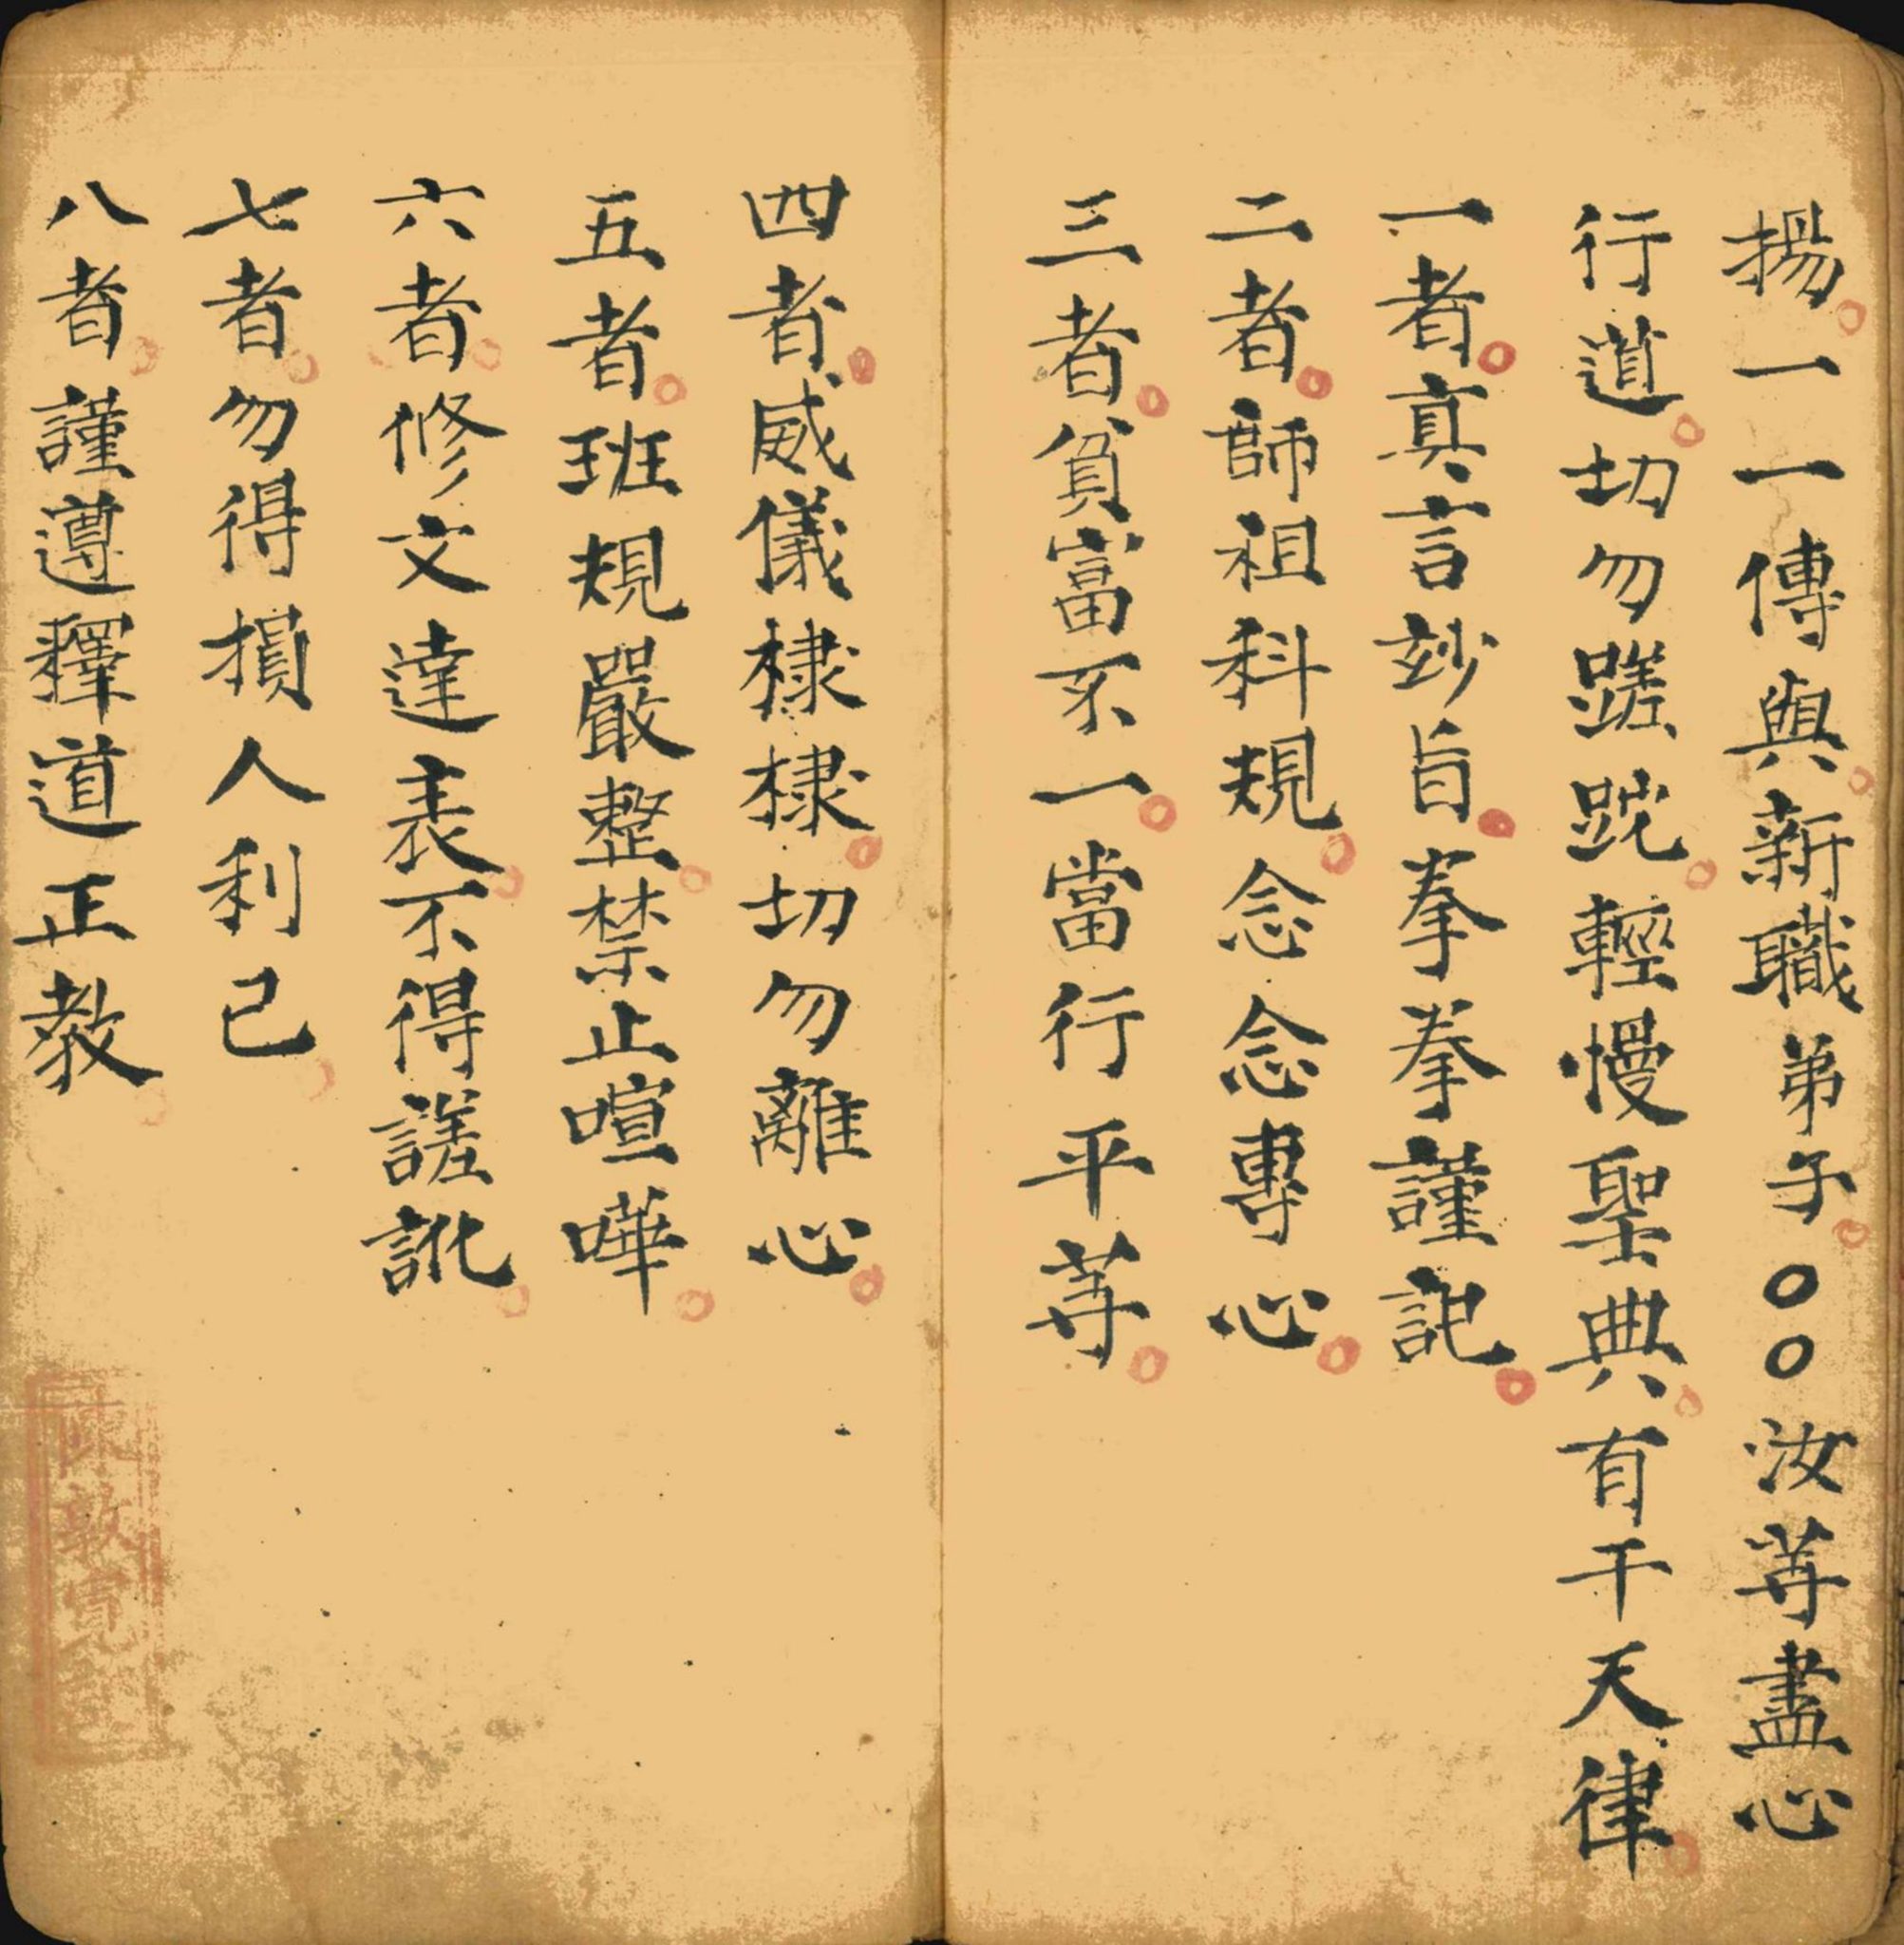 揚。一一傳與。新職弟子。○○汝等盡心
行道。切勿蹉跎。輕慢聖典。有干天律。
一者。真言玅旨。拳拳謹記。
二者。師祖科規。念念專心。
三者。貧富不一。當行平等。
四者。威儀棣棣。切勿離心。
五者。班規嚴整。禁止喧嘩。
六者。修文達表。不得謋訛。
七者。勿得損人利己。
八者。謹遵釋道正教。